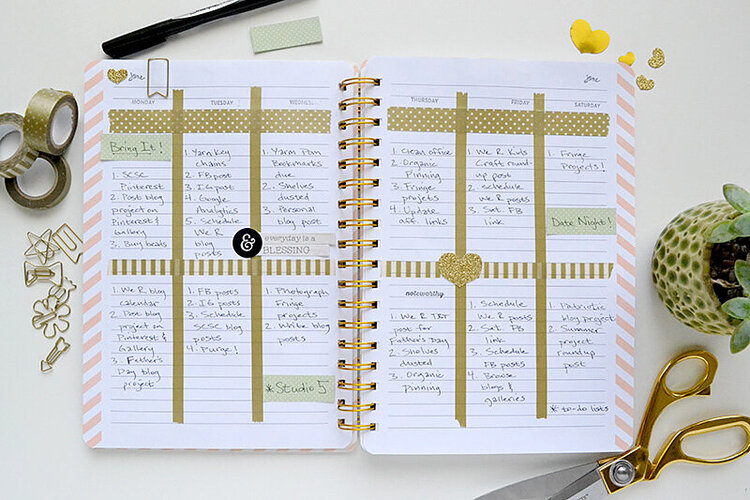 june
MONDAY
TUESDAY
WEDNESDAY
Bring It!
1. SCSC
Pinterest
2. Post blog
project on
Pinterest &
Gallery
3. Buy beads
1. Yarn Key
chains
2. FB post
3. IG post
4. Google
Analytics
5. Schedule
We R
blog
posts
1. Yarn Pom
Bookmarks
due
2. Shelves
dusted
3. Personal
blog post
&
everyday is a
BLESSING
1. We R blog
calendar
2. Post blog
project on
Pinterest &
Gallery
3. Father's
Day blog
project
1. FB posts
2. IG posts
3. Schedule
SCSC blog
posts
4. Purge!
1. Photograph
Fringe
projects
2. Write blog
posts
*Studio 5
june
THURSDAY
FRIDAY
SATURDAY
1. Clean office
2. Organic
Pinning
3. Fringe
projets
4. Update
aff. links
1. We R Kids
Craft round-
up post
2. schedule
We R posts
3. Sat. FB
link
1. Fringe
Projects!
Date Night!
noteworthy
1. We R T&T
post for
Father's Day
2. Shelves
dusted
3. Organic
Pinning
1. Schedule
We R posts
2. Sat. FB
link
3. Schedule
FB posts
4. Browse
blogs &
galleries
1. Patriotic
blog project
2. Summer
project
roundup
post
* to-do lists